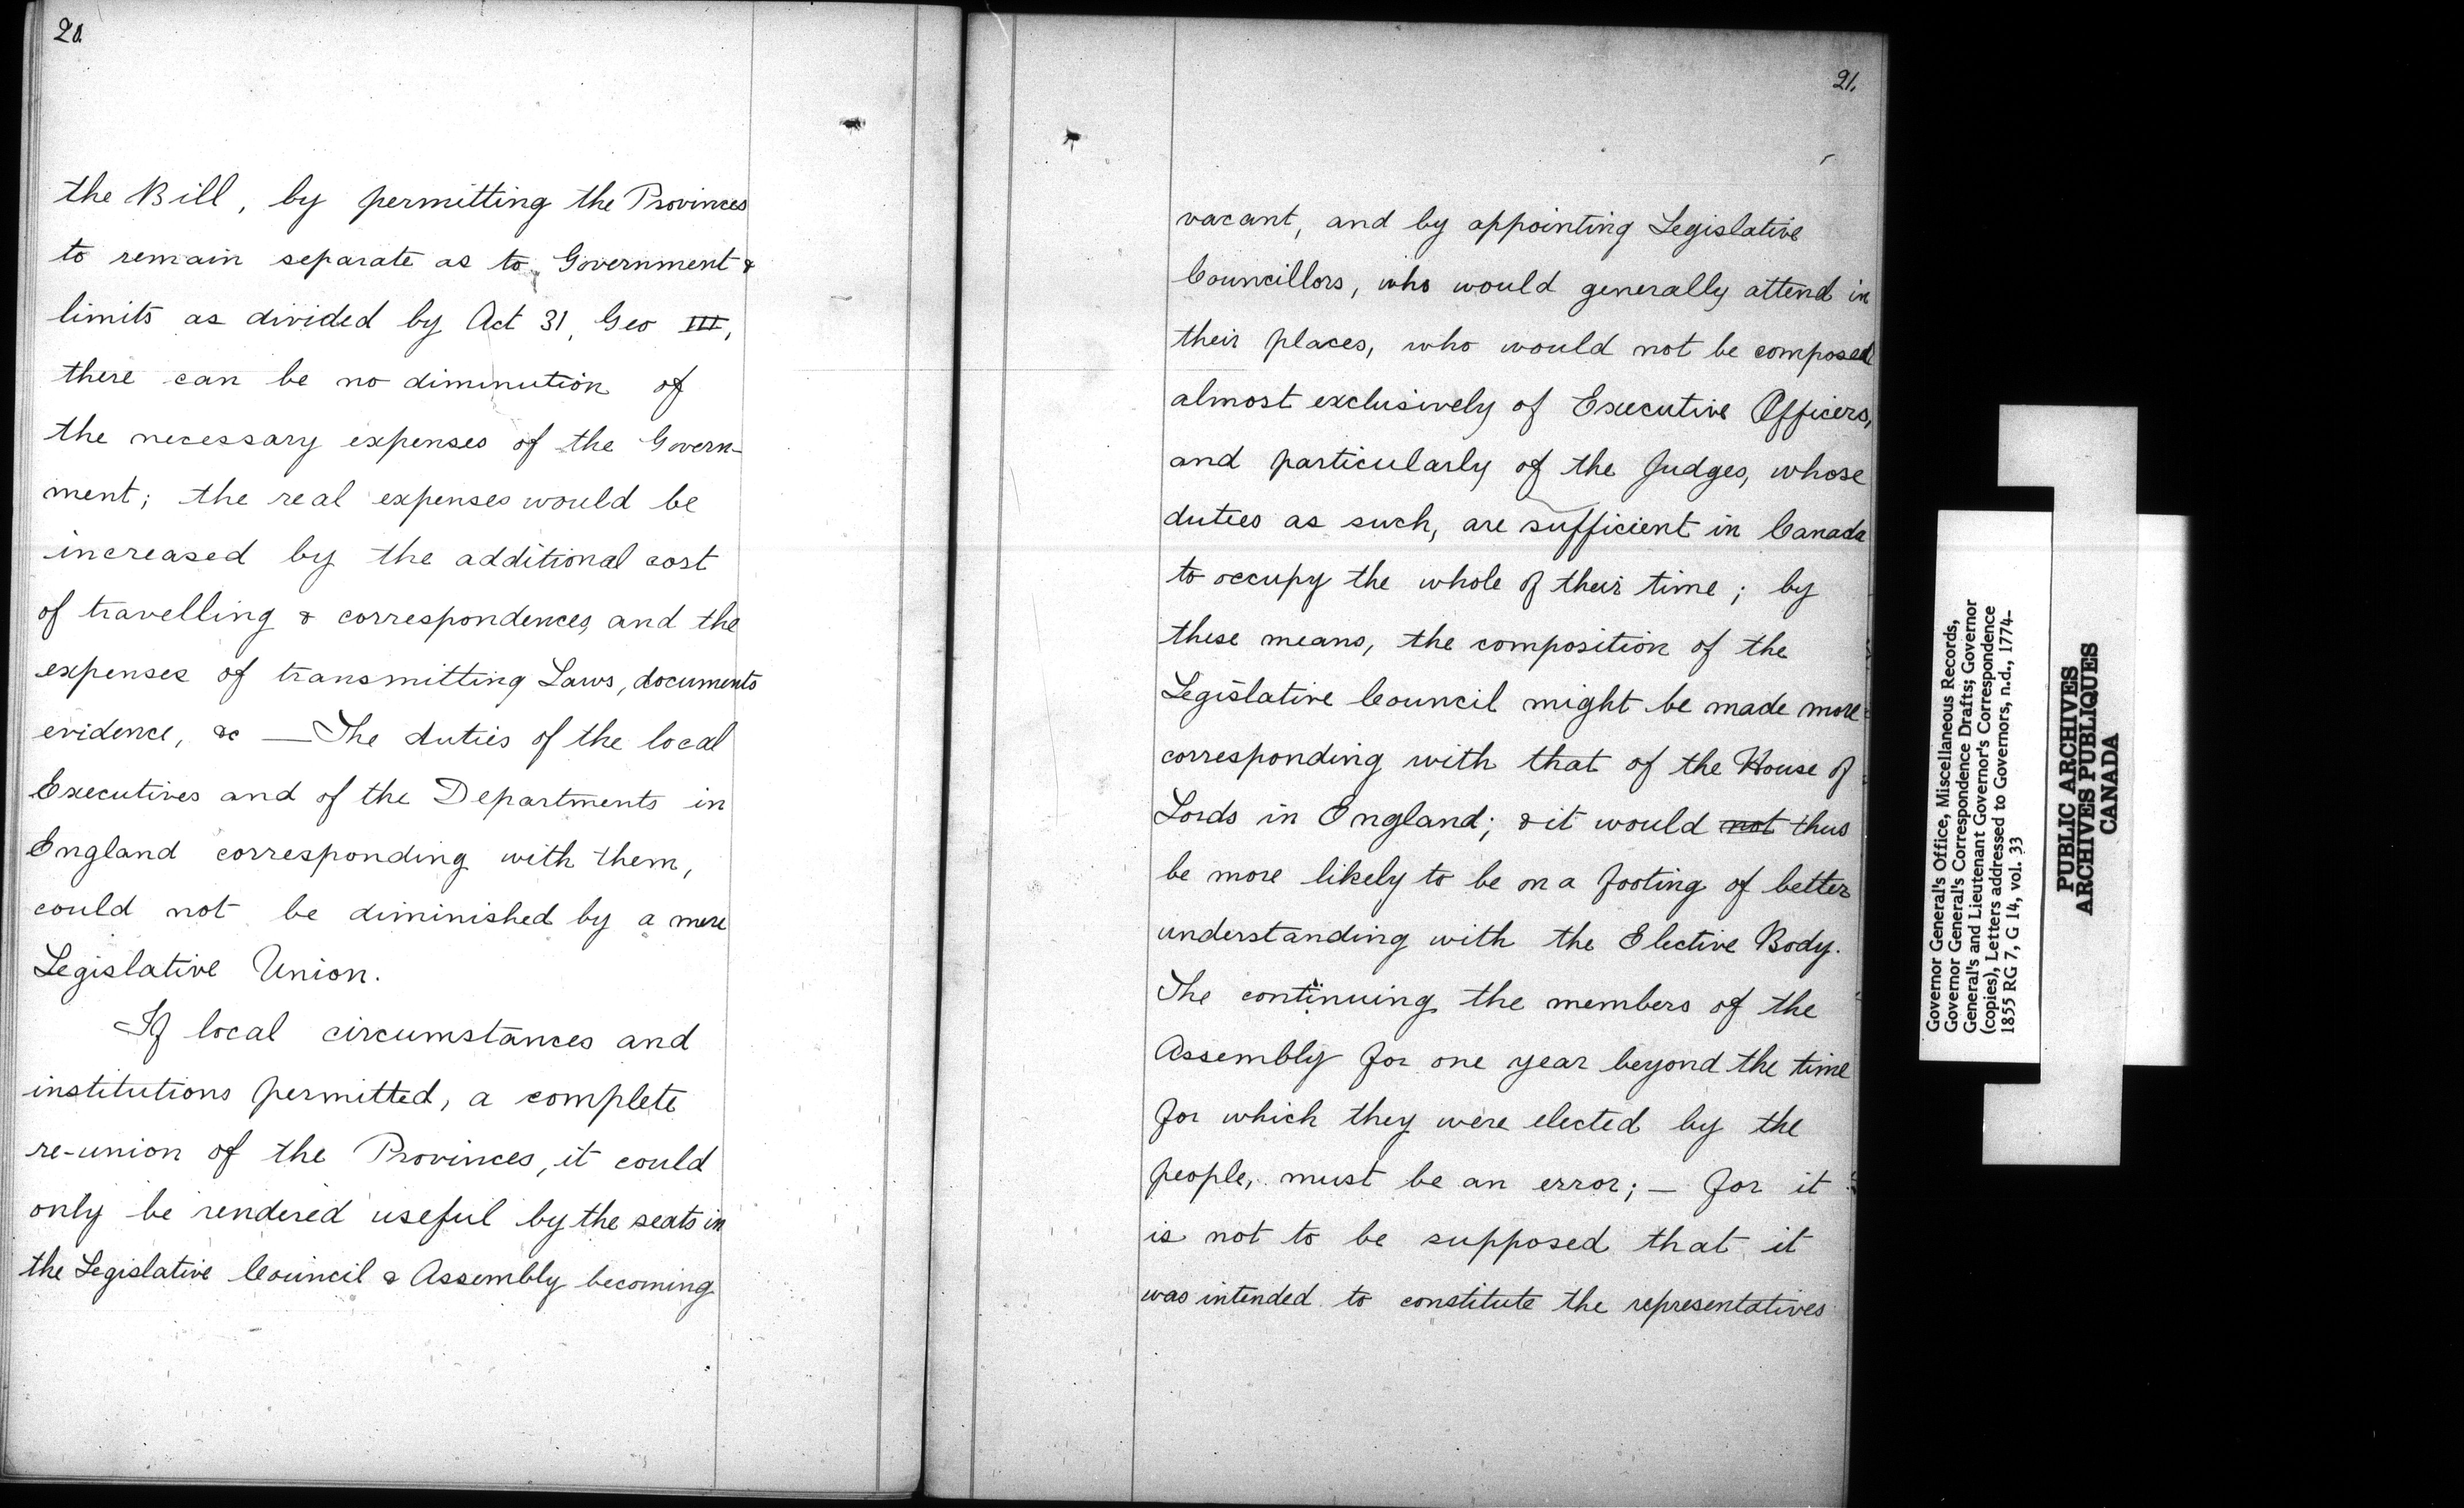 20.
the Bill, by permitting the Provinces
to remain separate as to Government &
limits as divided by Act 31, Geo III,
there can be no diminution of
the necessary expenses of the Govern-
ment; the real expenses would be
increased by the additional cost
of travelling & correspondences, and the
expenses of transmitting Laws, documents
evidence, &c — The duties of the local
Executives and of the Departments in
England corresponding with them,
could not be diminished by a mere
Legislative Union.
If local circumstances and
institutions permitted, a complete
re-union of the Provinces, it could
only be rendered useful by the seats in
the Legislative Council & Assembly becoming
21.
vacant, and by appointing Legislative
Councillors, who would generally attend in
their places, who would not be composed
almost exclusively of Executive Officers,
and particularly of the Judges, whose
duties as such, are sufficient in Canada
to occupy the whole of their time; by
these means, the composition of the
Legislative Council might be made more
corresponding with that of the House of
Lords in England; & it would not thus
be more likely to be on a footing of better
understanding with the Elective Body.
The continuing the members of the
Assembly for one year beyond the time
for which they were elected by the
people, must be an error; — for it
is not to be supposed that it
was intended to constitute the representatives
Governor General's Office, Miscellaneous Records,
Governor General's Correspondence Drafts; Governor
General's and Lieutenant Governor's Correspondence
(copies), Letters addressed to Governors, n.d., 1774-
1855 RG 7, G 14, vol. 33
PUBLIC ARCHIVES
ARCHIVES PUBLIQUES
CANADA